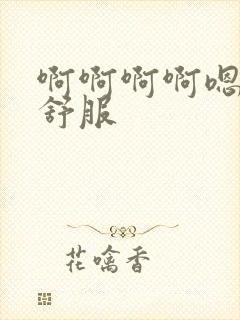 啊啊啊啊嗯
舒服
花噙香